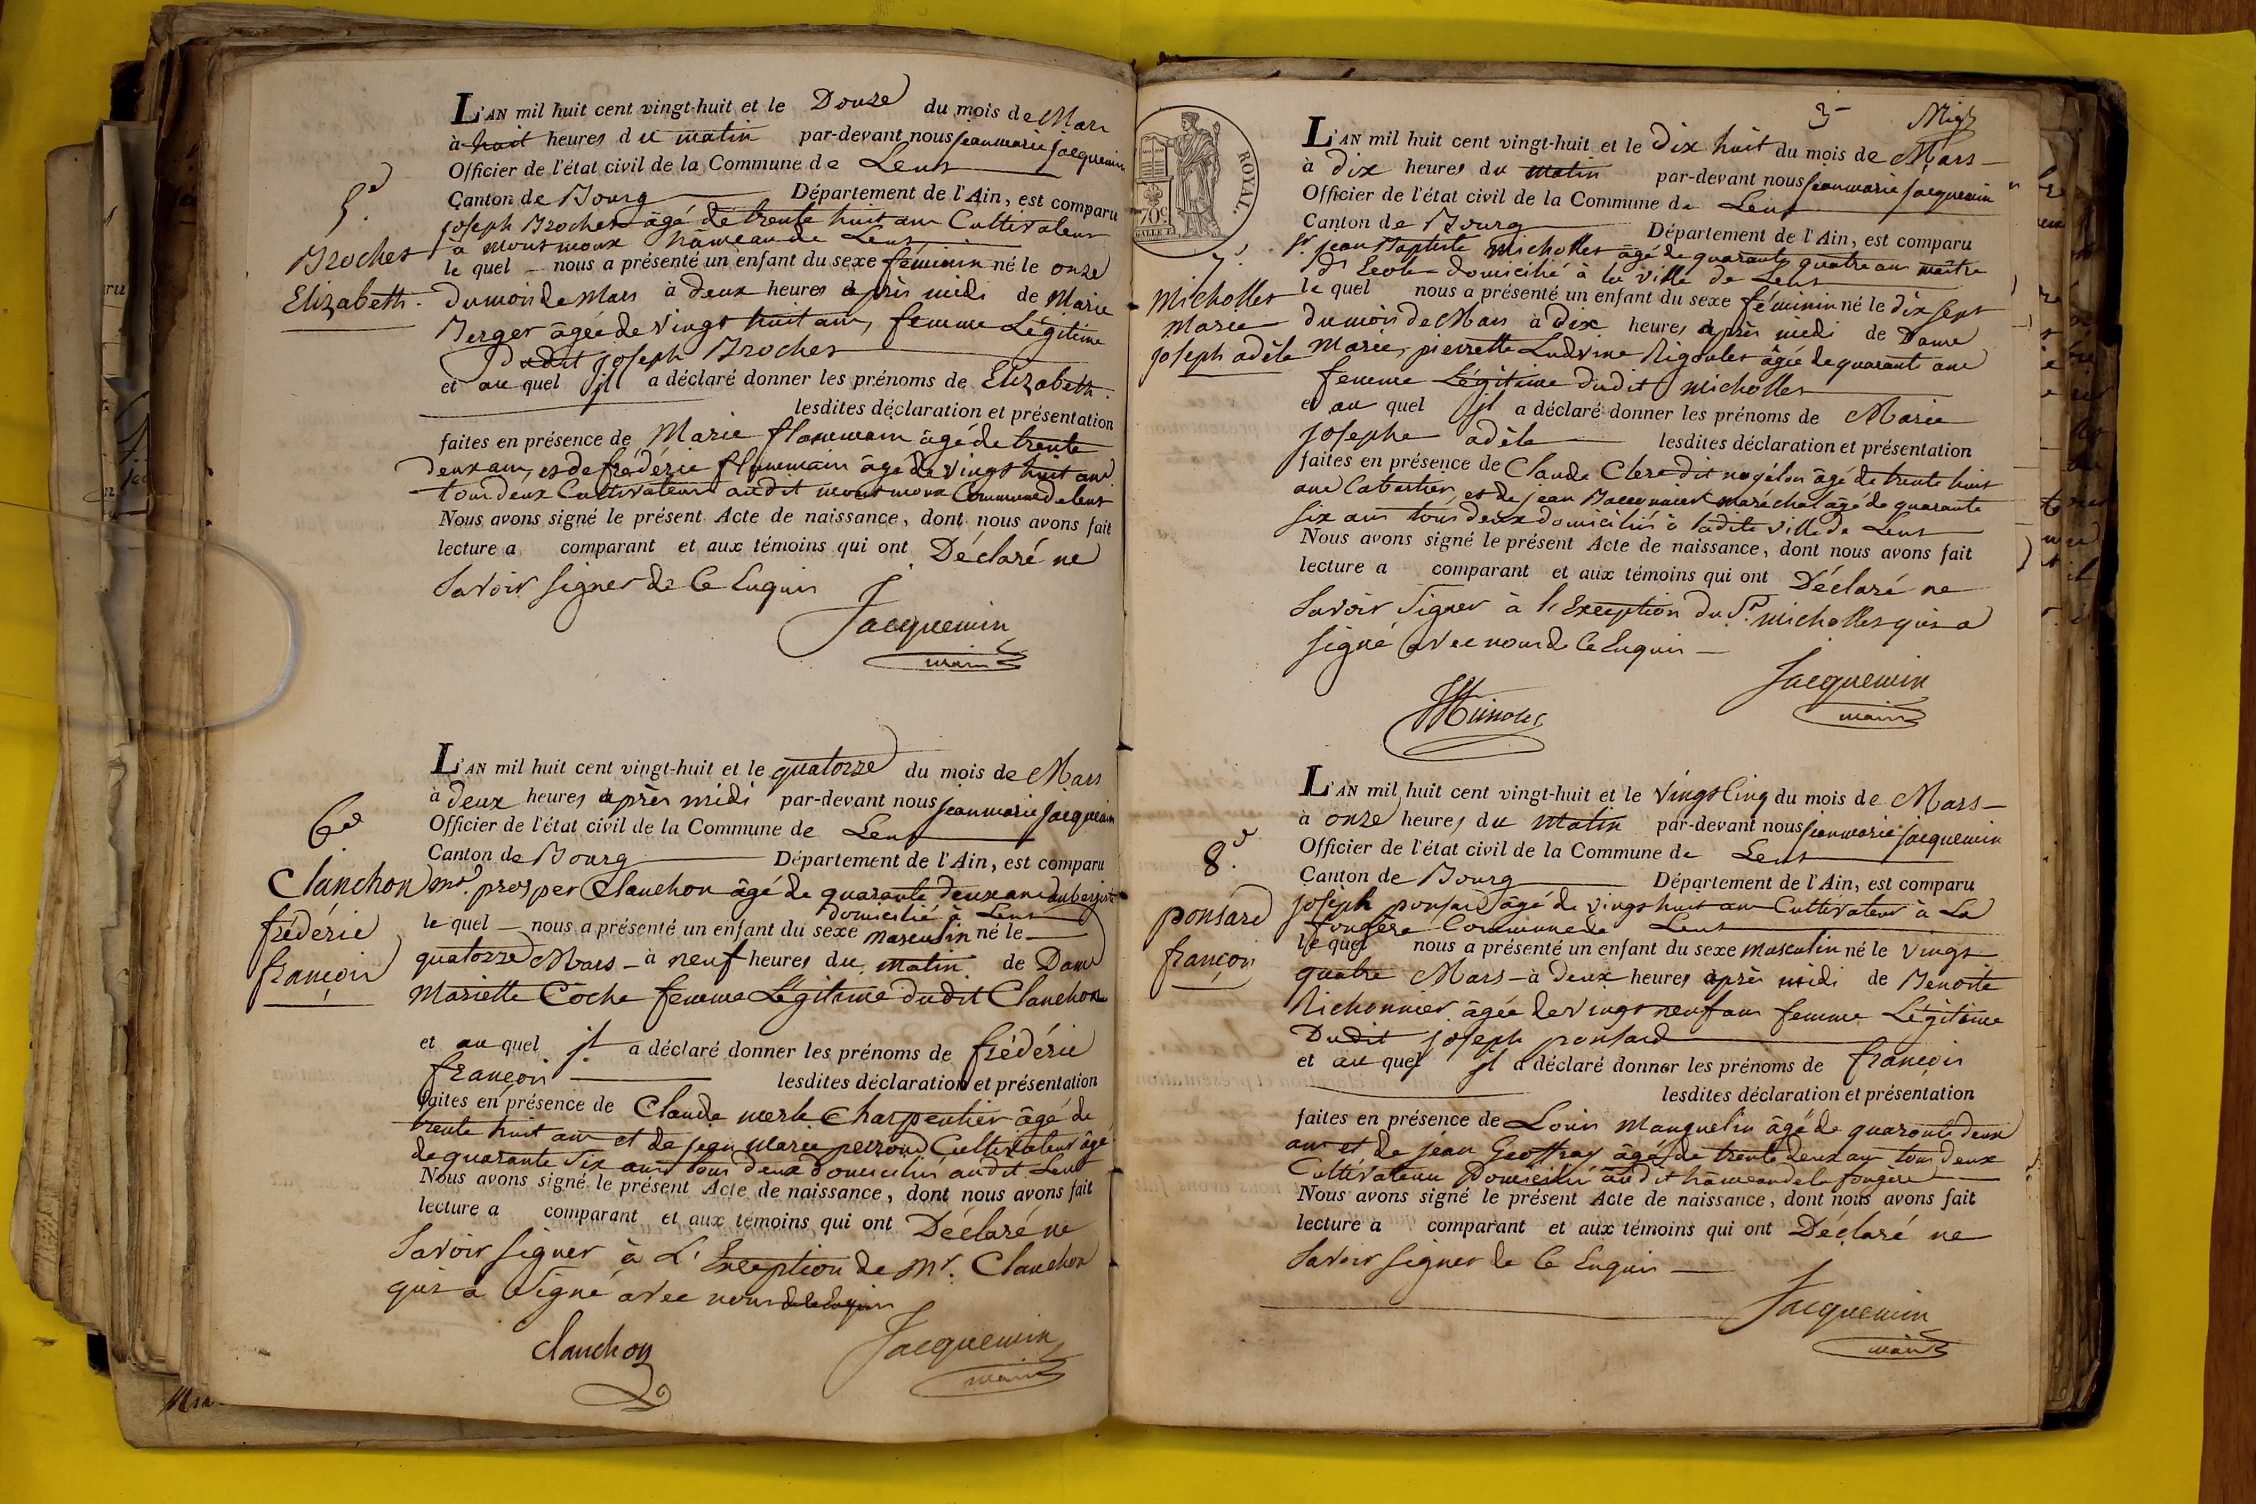 L'AN mil huit cent vingt-huit et le Douze du mois de Mars
à huit heures du matin par-devant nous jean marie jacquemin
Officier de l'état civil de la Commune de Lent
Canton de Bourg Département de l'Ain, est comparu
joseph Brochet âgé de trente huit ans Cultivateur
à hâmeau de Lent
le quel nous a présenté un enfant du sexe féminin né le onze
du mois de Mars à deux heures après midi de Marie
Berger âgée de vingt huit ans, femme Légitime
Dudit joseph Brochet
et au quel jl a déclaré donner les prénoms de Elizabeth.
lesdites déclaration et présentation
faites en présence de Marie âgé de trente
deux ans, et de frédéric âgé de vingt huit ans
tous deux Cultivateurs audit Commune de Lent
Nous avons signé le présent Acte de naissance, dont nous avons fait
lecture a comparant et aux témoins qui ont Déclaré ne
Savoir signer de Ce Enquis
Jacquemin
maire
5e
Brochet
Elizabeth.
L'AN mil huit cent vingt-huit et le quatorze du mois de Mars
à deux heures après midi par-devant nous jean marie jacquemin
Officier de l'état civil de la Commune de Lent
Canton de Bourg Département de l'Ain, est comparu
mr. prosper Clanchon âgé de quarante deux ans aubergiste
domicilié à Lent
le quel nous a présenté un enfant du sexe masculin né le
quatorze Mars à neuf heures du matin de Dame
Mariette Coche femme Légitime dudit Clanchon
et au quel jl a déclaré donner les prénoms de frédéric
françois lesdites déclaration et présentation
faites en présence de Claude merle Charpentier âgé de
trente huit ans et de jean marie perroud Cultivateur âgé
de quarante six ans tous deux domiciliés audit Lent
Nous avons signé le présent Acte de naissance, dont nous avons fait
lecture a comparant et aux témoins qui ont Déclaré ne
Savoir signer à L'Exception de Mr. Clanchon
qui a Signé avec nous de Ce Enquis
Clanchon Jacquemin
maire
6e
Clanchon
frédéric
françois
3
ROYAL.
70c
L'AN mil huit cent vingt-huit et le Dix huit du mois de Mars
à dix heures du matin par-devant nous jean marie jacquemin
Officier de l'état civil de la Commune de Lent
Canton de Bourg Département de l'Ain, est comparu
Sr. jean Baptiste Michollet âgé de quarante quatre ans maître
d'Ecole domicilié à la ville de Lent
le quel nous a présenté un enfant du sexe féminin né le dix sept
du mois de Mars à Dix heures après midi de Dame
Marie, pierrette Ludvine Rigoulet âgée de quarante ans
femme Légitime dudit Michollet
et au quel jl a déclaré donner les prénoms de Marie
josephe adèle lesdites déclaration et présentation
faites en présence de Claude Clerc dit âgé de trente huit
ans Cabartier, et de jean maréchal âgé de quarante
six ans tous deux domiciliés à ladite ville de Lent
Nous avons signé le présent Acte de naissance, dont nous avons fait
lecture a comparant et aux témoins qui ont Déclaré ne
Savoir Signer à l'Exception du Sr. michollet qui a
signé avec nous de Ce Enquis
Jacquemin
maire
7e
Michollet
Marie
joseph adèle
L'AN mil huit cent vingt-huit et le vingt Cinq du mois de Mars
à onze heures du matin par-devant nous jean marie jacquemin
Officier de l'état civil de la Commune de Lent
Canton de Bourg Département de l'Ain, est comparu
joseph ponsard âgé de vingt huit ans Cultivateur à La
fougère Commune de Lent
le quel nous a présenté un enfant du sexe masculin né le vingt
quatre Mars à deux heures après midi de Benoite
Richonnier âgée de vingt neuf ans femme Légitime
Dudit joseph ponsard
et au quel jl a déclaré donner les prénoms de françois
lesdites déclaration et présentation
faites en présence de Louis Manguelin âgé de quarante deux
ans et de jean Geoffray âgé de trente deux ans tous deux
Cultivateurs Domiciliés audit hâmeau de la fougère
Nous avons signé le présent Acte de naissance, dont nous avons fait
lecture a comparant et aux témoins qui ont Déclaré ne
Savoir signer de Ce Enquis
Jacquemin
maire
8e
ponsard
françois